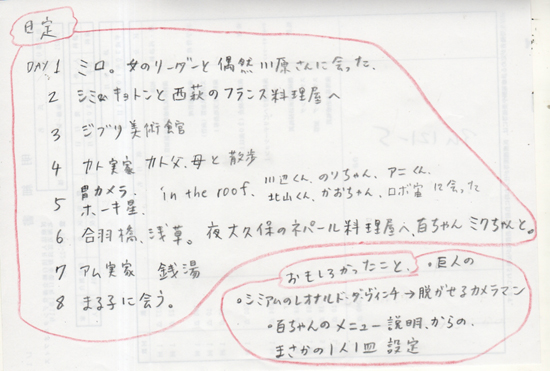 日定
DAY 1 ミロ。女のリーダーと偶然川原さんに会った.
2 シミズキョトンと西荻のフランス料理屋へ
3 ジブリ美術館
4 カト実家 カト父、母と散歩
5 胃カメラ. ホーキ星. in the roof. 川辺くん、のりちゃん、アニくん、北山くん、かおちゃん、ロボ宙に会った
6 合羽橋、浅草。夜大久保のネパール料理屋へ、百ちゃんミクちゃんと。
7 アム実家 銭湯
8 まる子に会う。
おもしろかったこと、
・巨人の
・シミアムのレオナルド・ダ・ヴィンチ→脱がせるカメラマン
・百ちゃんのメニュー説明、からの、
まさかの1人1皿 設定